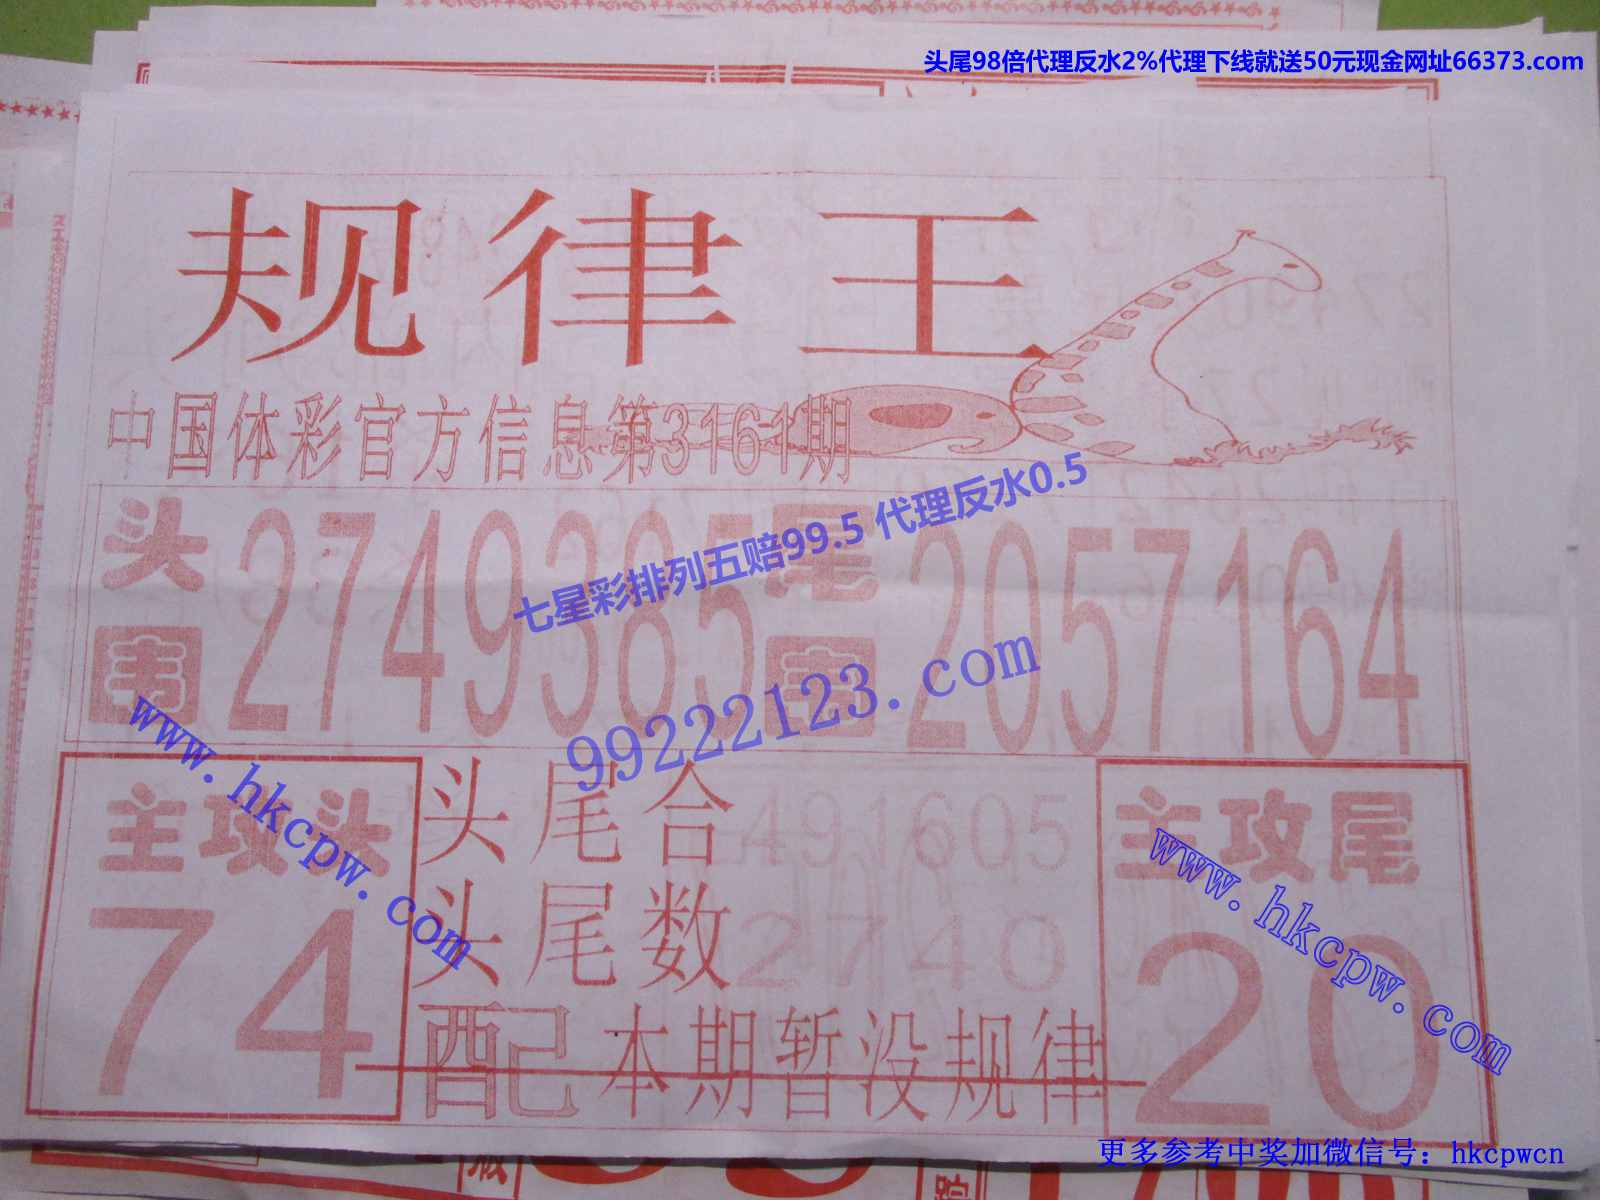 头尾98倍代理反水2%代理下线就送50元现金网址66373.com
规律王
中国体彩官方信息第3161期
头围 2749385 尾围 2057164
七星彩排列五赔99.5 代理反水0.5
99222123.com
主攻头
74
头尾合 491605
头尾数 2740
配 本期暂没规律
主攻尾
20
www.hkcpw.com
www.hkcpw.com
更多参考中奖加微信号：hkcpwcn